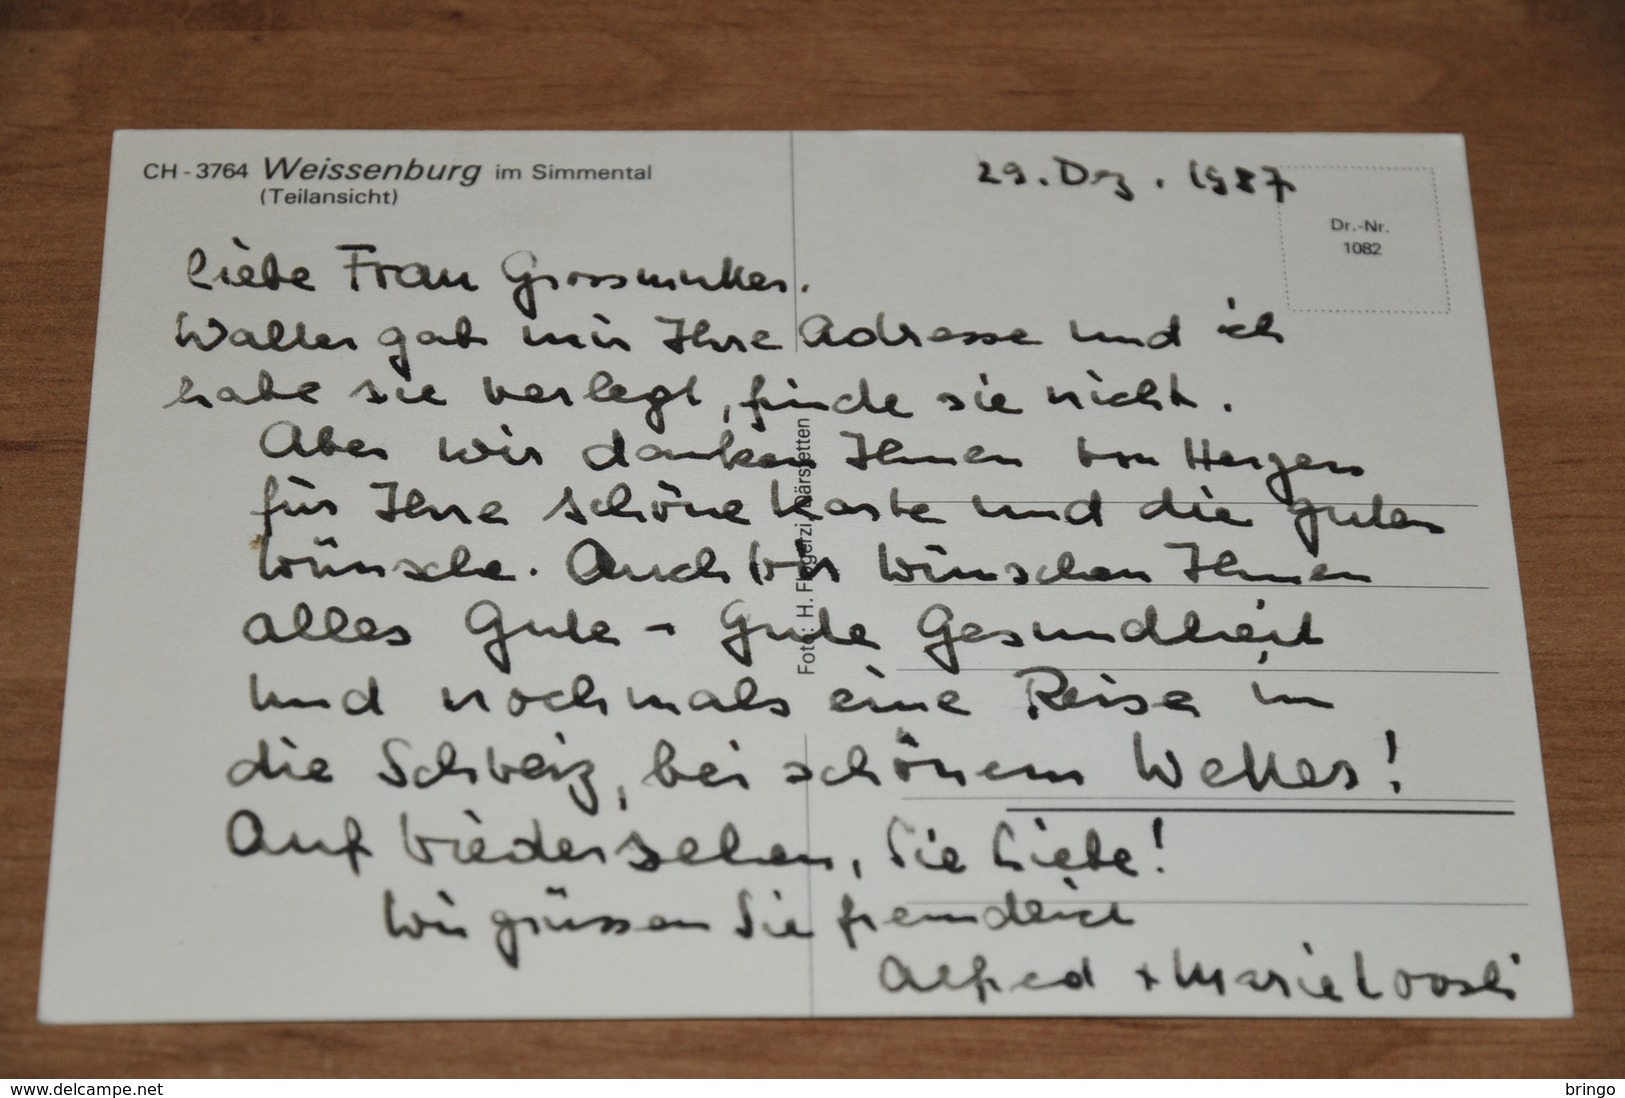 CH - 3764 Weissenburg im Simmental
(Teilansicht)
29. Dez. 1987
Dr.-Nr.
1082
Liebe Frau
Walter gab mir Ihre Adresse und ich
habe sie verlegt, finde sie nicht.
Aber wir danken Ihnen von Herzen
für Ihre schöne Karte und die guten
Wünsche. Auch wir wünschen Ihnen
alles Gute - Gute Gesundheit
und nochmals eine Reise in
die Schweiz, bei schönem Wetter!
Auf Wiedersehen, Sie Liebe!
Wir grüssen Sie freundlich
Alfred + Marie Loosli
Foto: H. Flogerzi, Därstetten
www.delcampe.net
bringo